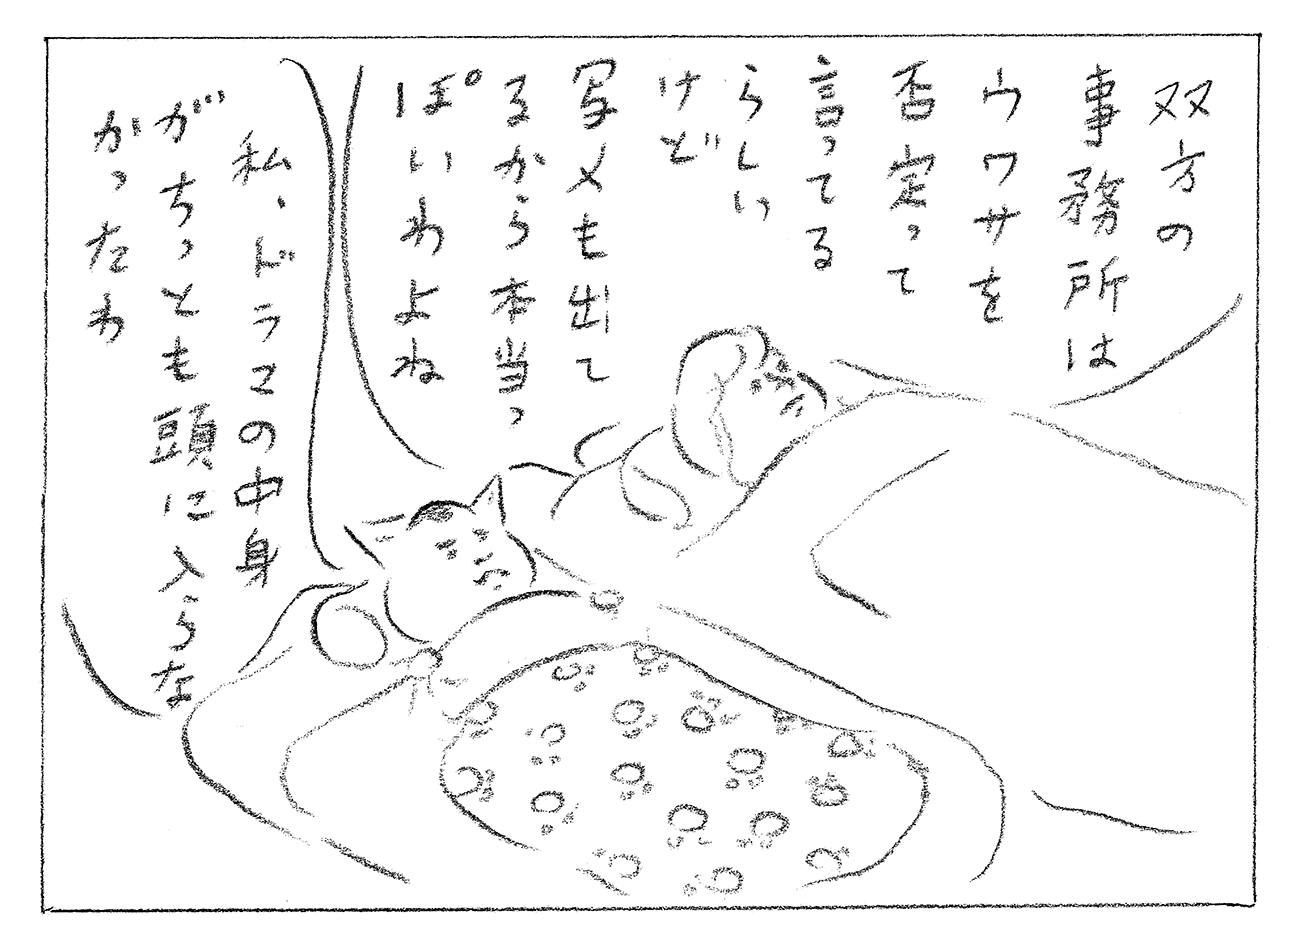 双方の
事務所は
ウワサを
否定って
言ってる
らしい
けど
写メも出て
るから本当っ
ぽいわよね
私、ドラマの中身
がちっとも頭に入らな
かったわ